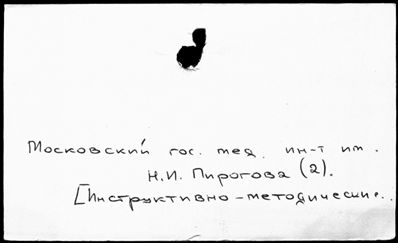 Московский гос. мед. ин-т им.
Н.И. Пирогова (2).
[Инструктивно-методические..